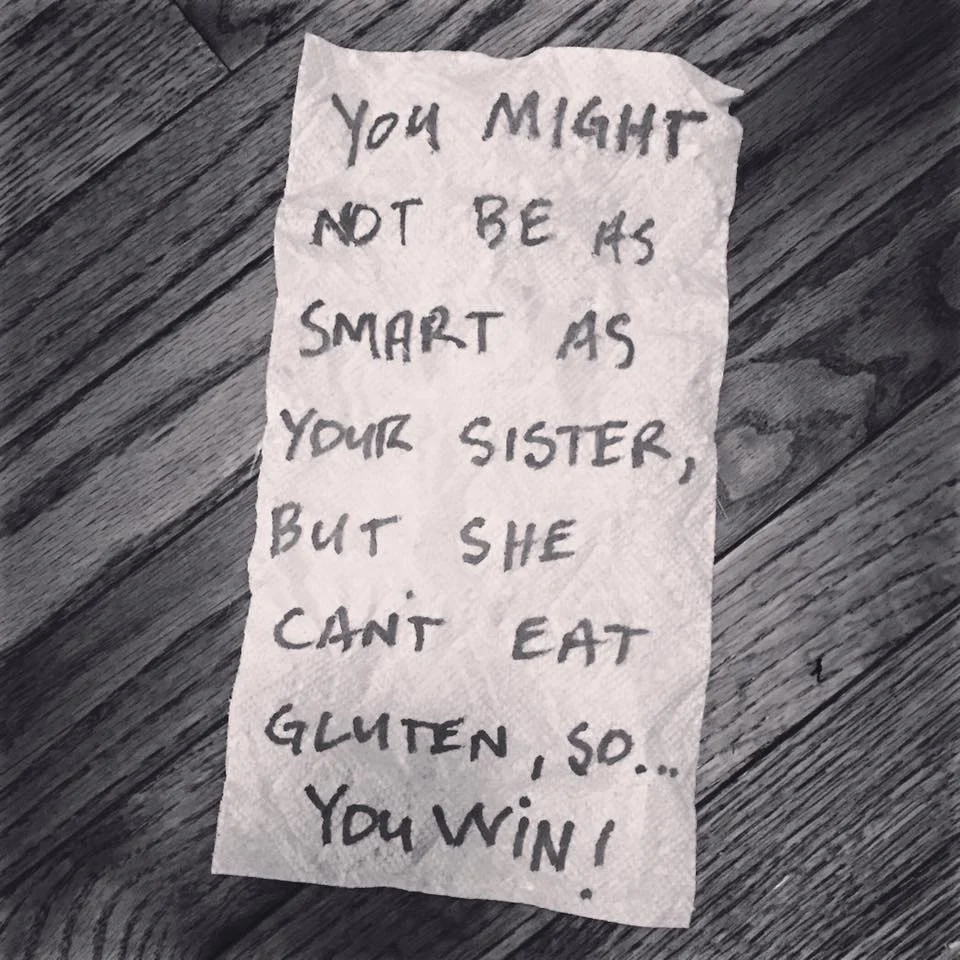 YOU MIGHT
NOT BE AS
SMART AS
YOUR SISTER,
BUT SHE
CAN'T EAT
GLUTEN, SO...
YOU WIN!